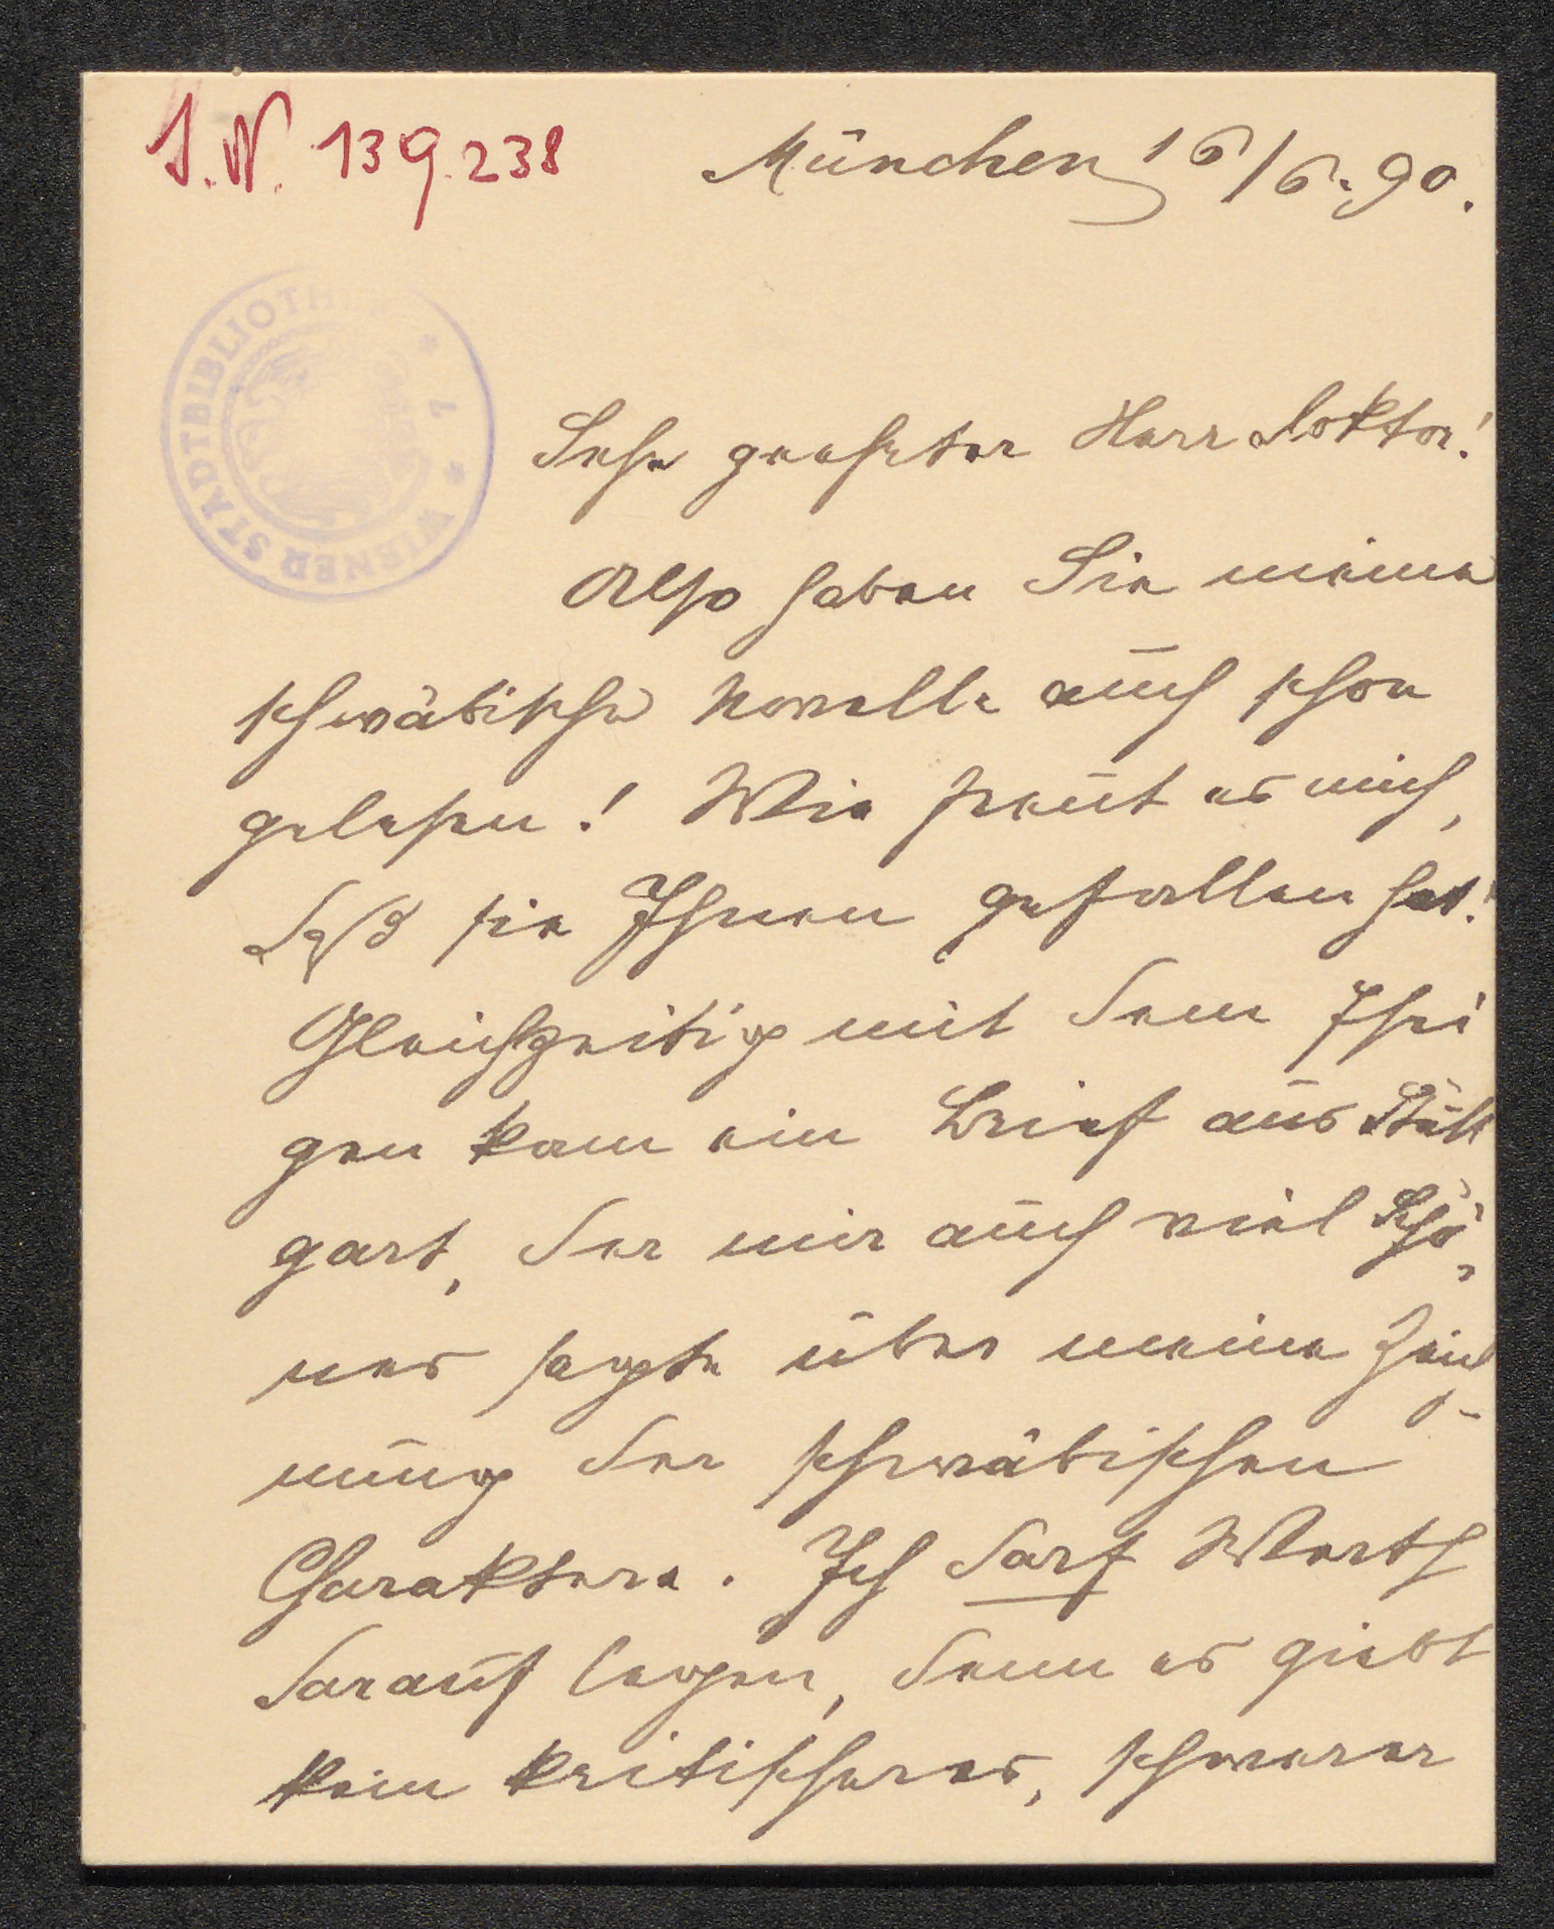 J.N. 139.238
München 16/6. 90.
WIENER STADTBIBLIOTHEK * 1 *
Sehr geehrter Herr Doktor!
Also haben Sie meine
schwäbische Novelle auch schon
gelesen! Wie freut es mich,
daß sie Ihnen gefallen hat!
Gleichzeitig mit dem Ihri
gen kam ein Brief aus Stutt
gart, der mir auch viel Schö„
nes sagte über meine Zeich„
nung der schwäbischen
Charaktere. Ich darf Werth
darauf legen, denn es giebt
kein kritischeres, schwerer